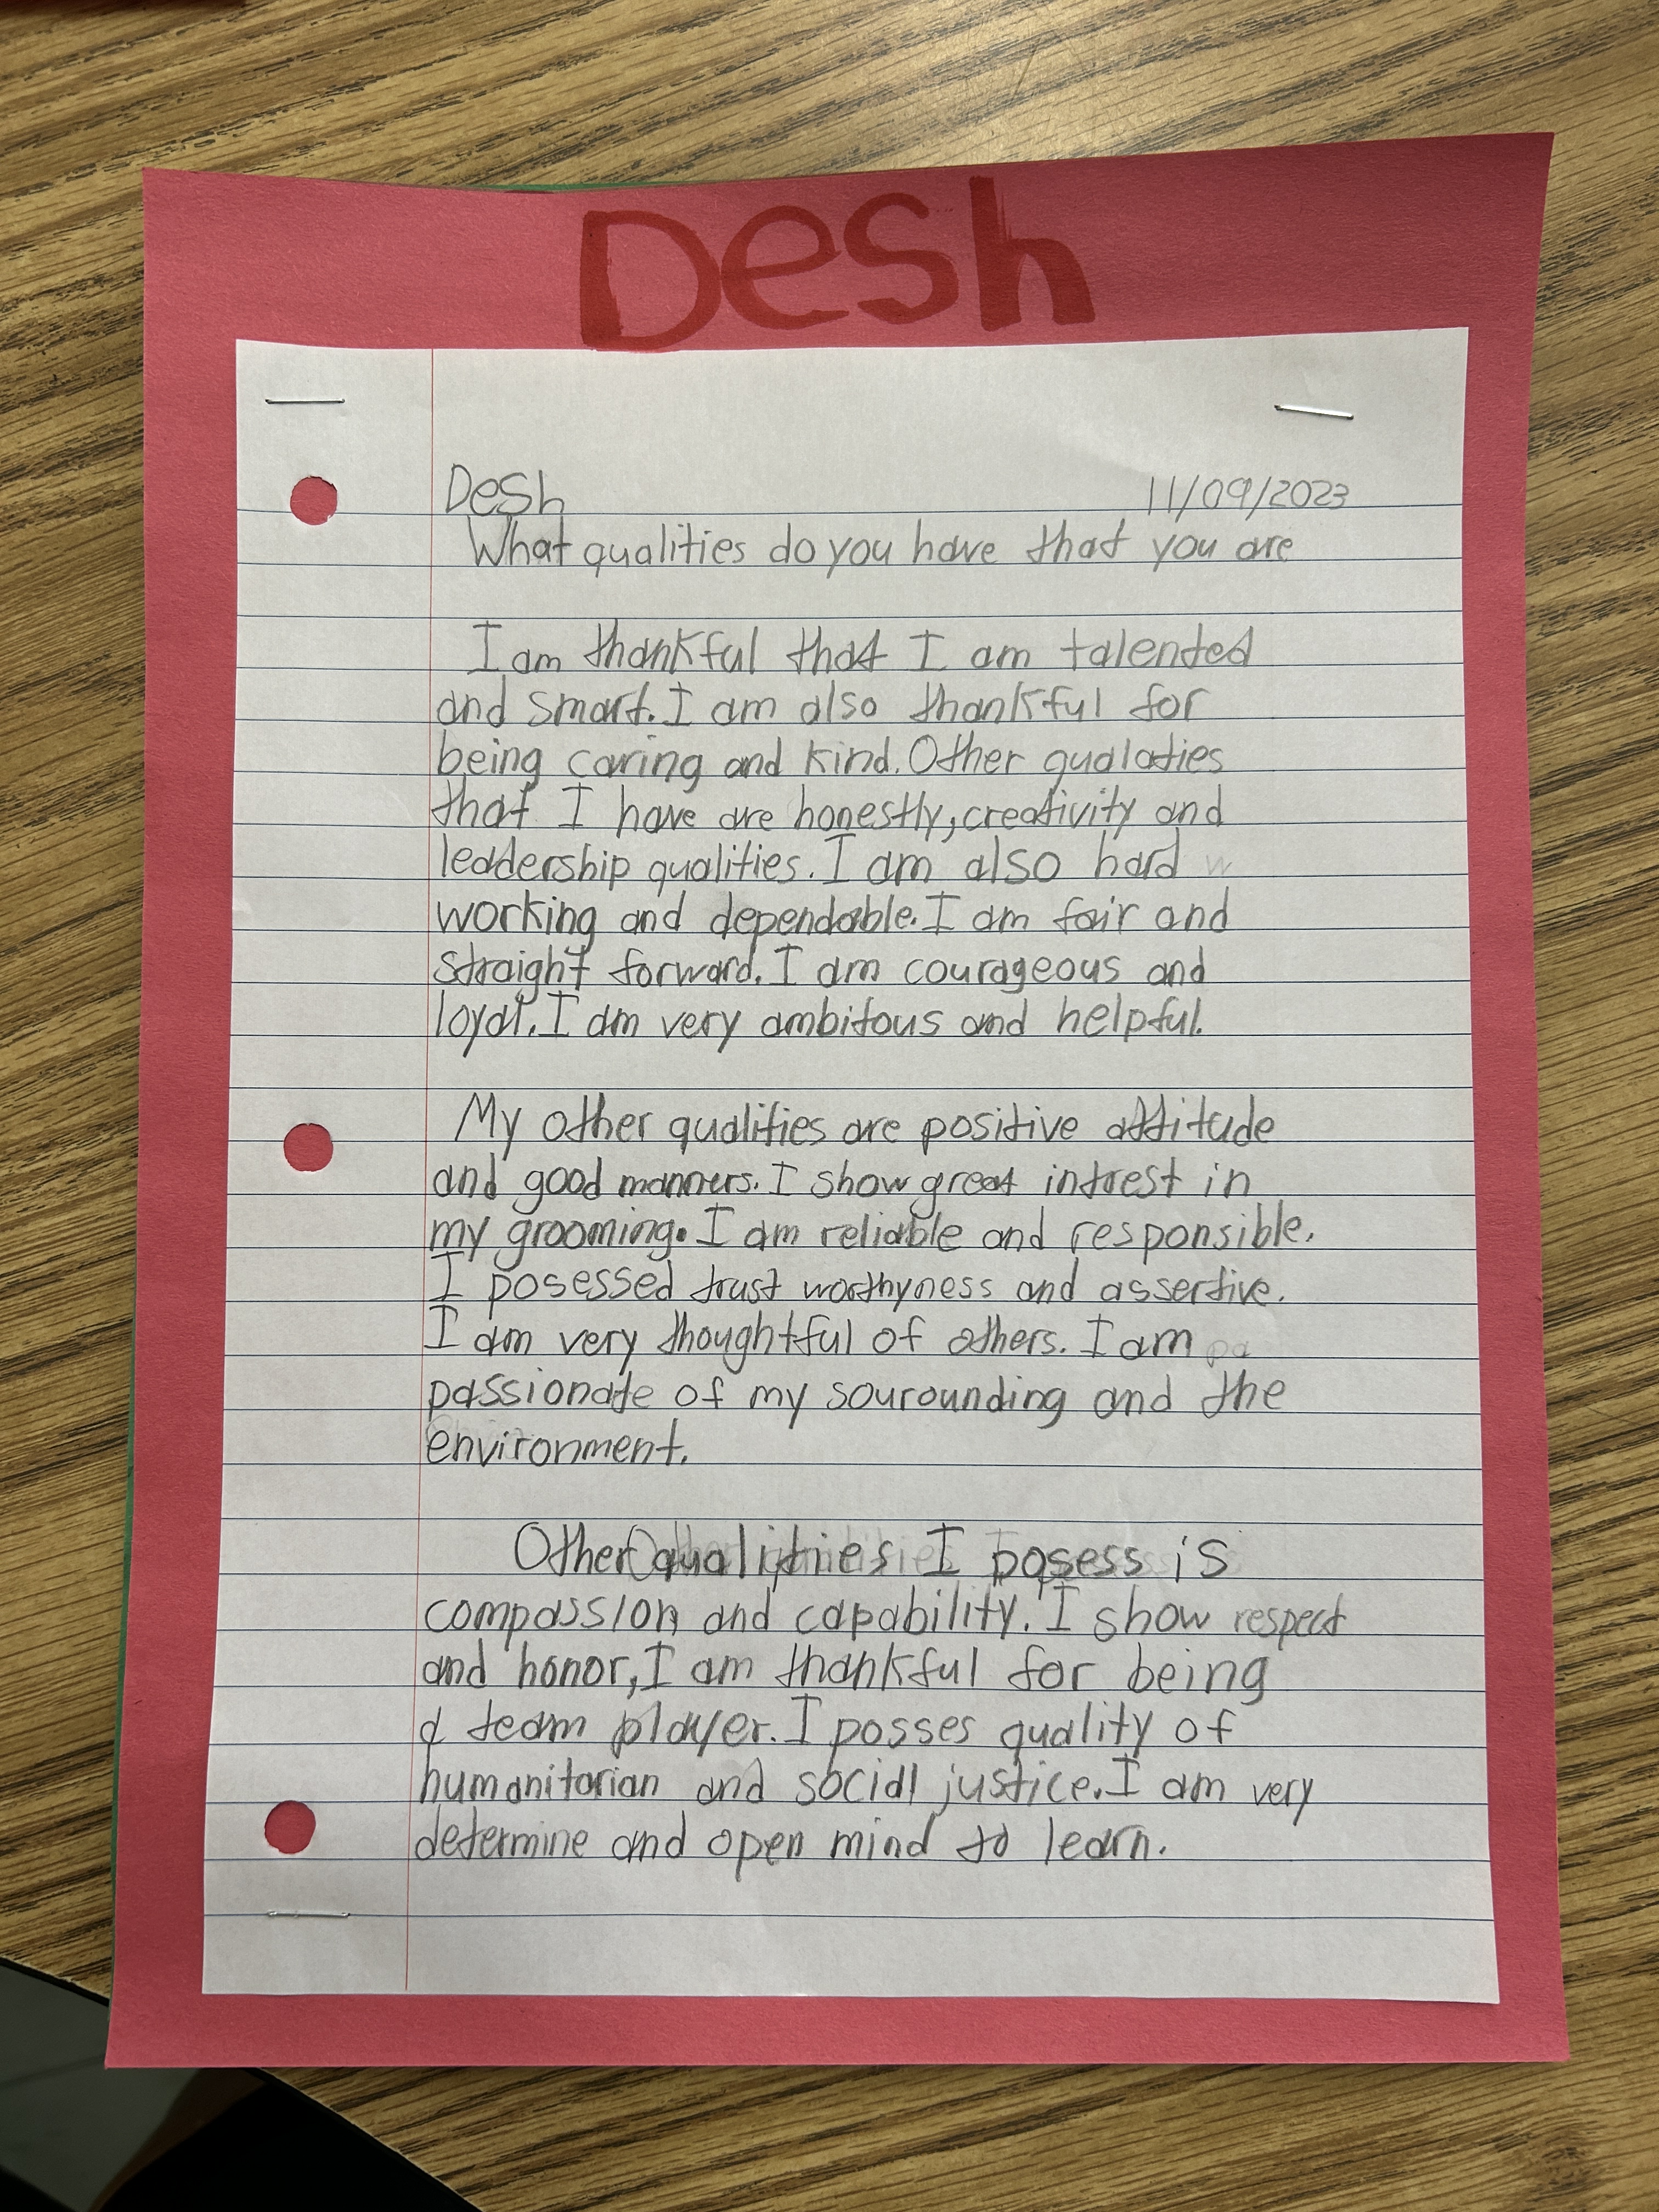 Desh
Desh 11/09/2023
What qualities do you have that you are
I am thankful that I am talented
and smart. I am also thankful for
being caring and kind. Other qualaties
that I have are honestly, creativity and
leadership qualities. I am also hard w
working and dependable. I am fair and
straight forward. I am courageous and
loyal. I am very ambitous and helpful.
My other qualities are positive attitude
and good manners. I show great intrest in
my grooming. I am reliable and responsible.
I posessed trust worthyness and assertive.
I am very thoughtful of others. I am pa
passionate of my sourounding and the
environment.
Other qualities I posess is
compassion and capability. I show respect
and honor, I am thankful for being
a team player. I posses quality of
humanitarian and social justice. I am very
determine and open mind to learn.